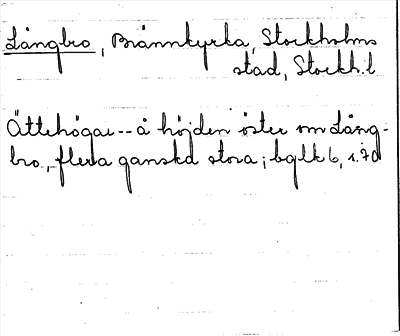 Långbro, Brännkyrka, Stockholms
stad, Stockh.l
Ättehögar -- å höjden öster om Lång-
bro, flera ganska stora; bglk 6, s. 70